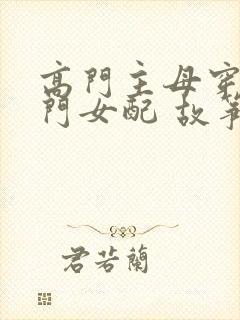 高門主母穿
門女配 故事
君若蘭